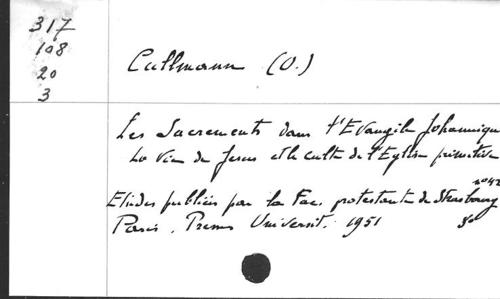 317
108
20
3
Cullmann (O.)
Les Sacrements dans l'Evangile Johannique
La Vie de Jesus et le culte de l'Eglise primitive
n° 42
Etudes publiées par la Fac. protestante de Strasbourg
Paris, Presses Universit. 1951 8°